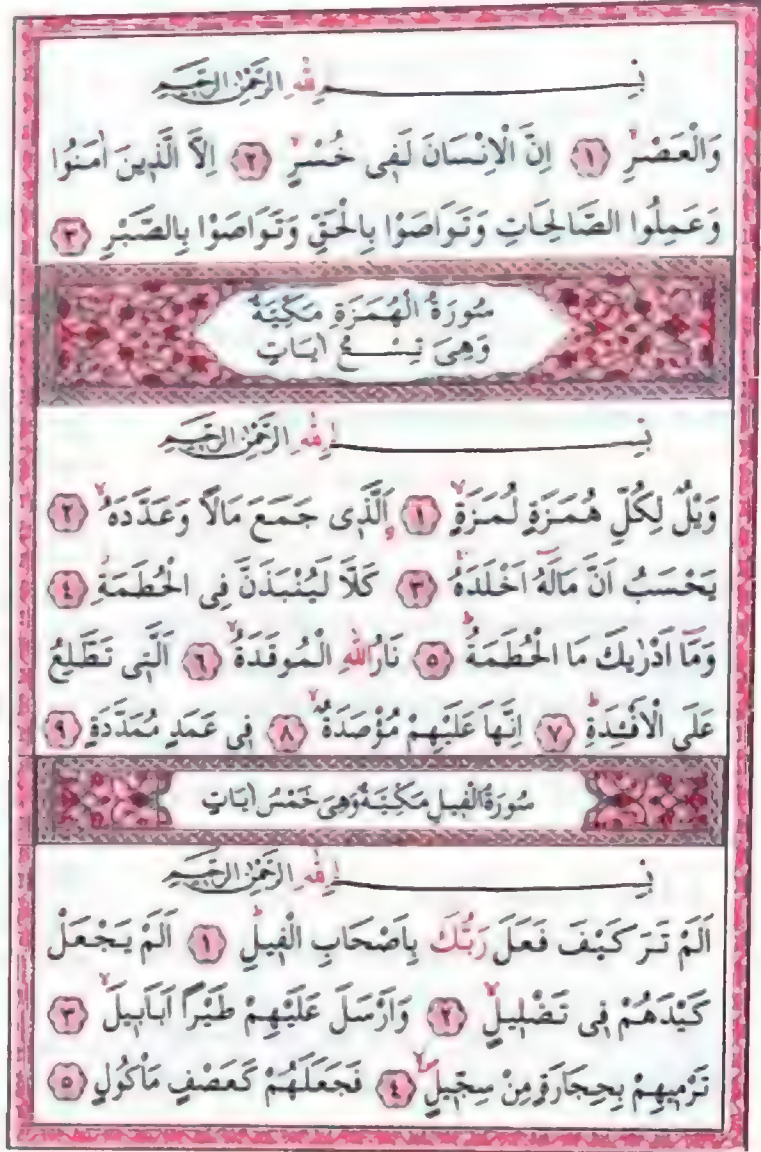 بِسْمِ اللهِ الرَّحْمٰنِ الرَّحِيمِ
وَالْعَصْرِۙ ﴿١﴾ اِنَّ الْاِنْسَانَ لَفٖى خُسْرٍۙ ﴿٢﴾ اِلَّا الَّذٖينَ اٰمَنُوا
وَعَمِلُوا الصَّالِحَاتِ وَتَوَاصَوْا بِالْحَقِّ وَتَوَاصَوْا بِالصَّبْرِ ﴿٣﴾
سُورَةُ الْهُمَزَةِ مَكِّيَّةٌ
وَهِىَ تِسْعُ اٰيَاتٍ
بِسْمِ اللهِ الرَّحْمٰنِ الرَّحِيمِ
وَيْلٌ لِكُلِّ هُمَزَةٍ لُمَزَةٍۙ ﴿١﴾ اَلَّذٖى جَمَعَ مَالًا وَعَدَّدَهُۙ ﴿٢﴾
يَحْسَبُ اَنَّ مَالَهُٓ اَخْلَدَهُۚ ﴿٣﴾ كَلَّا لَيُنْبَذَنَّ فِى الْحُطَمَةِۘ ﴿٤﴾
وَمَٓا اَدْرٰيكَ مَا الْحُطَمَةُۜ ﴿٥﴾ نَارُ اللهِ الْمُوقَدَةُۙ ﴿٦﴾ اَلَّتٖى تَطَّلِعُ
عَلَى الْاَفْـِٔدَةِۜ ﴿٧﴾ اِنَّهَا عَلَيْهِمْ مُؤْصَدَةٌۙ ﴿٨﴾ فٖى عَمَدٍ مُمَدَّدَةٍ ﴿٩﴾
سُورَةُ الْفٖيلِ مَكِّيَّةٌ وَهِىَ خَمْسُ اٰيَاتٍ
بِسْمِ اللهِ الرَّحْمٰنِ الرَّحِيمِ
اَلَمْ تَرَ كَيْفَ فَعَلَ رَبُّكَ بِاَصْحَابِ الْفٖيلِۜ ﴿١﴾ اَلَمْ يَجْعَلْ
كَيْدَهُمْ فٖى تَضْلٖيلٍۙ ﴿٢﴾ وَاَرْسَلَ عَلَيْهِمْ طَيْرًا اَبَابٖيلَۙ ﴿٣﴾
تَرْمٖيهِمْ بِحِجَارَةٍ مِنْ سِجّٖيلٍۙ ﴿٤﴾ فَجَعَلَهُمْ كَعَصْفٍ مَأْكُولٍ ﴿٥﴾